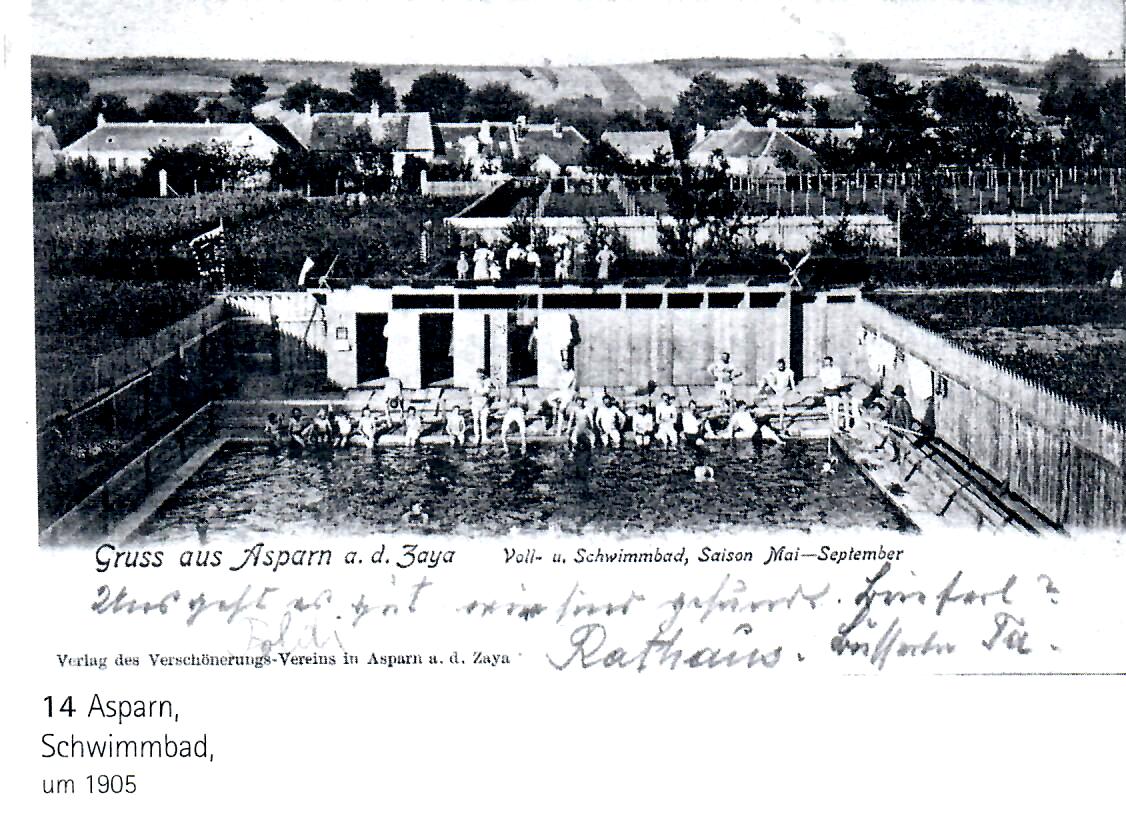 Gruss aus Asparn a. d. Zaya Voll- u. Schwimmbad, Saison Mai—September
Uns geht es gut wir sind gesund.
Poldi
Rathaus.
Verlag des Verschönerungs-Vereins in Asparn a. d. Zaya
14 Asparn,
Schwimmbad,
um 1905